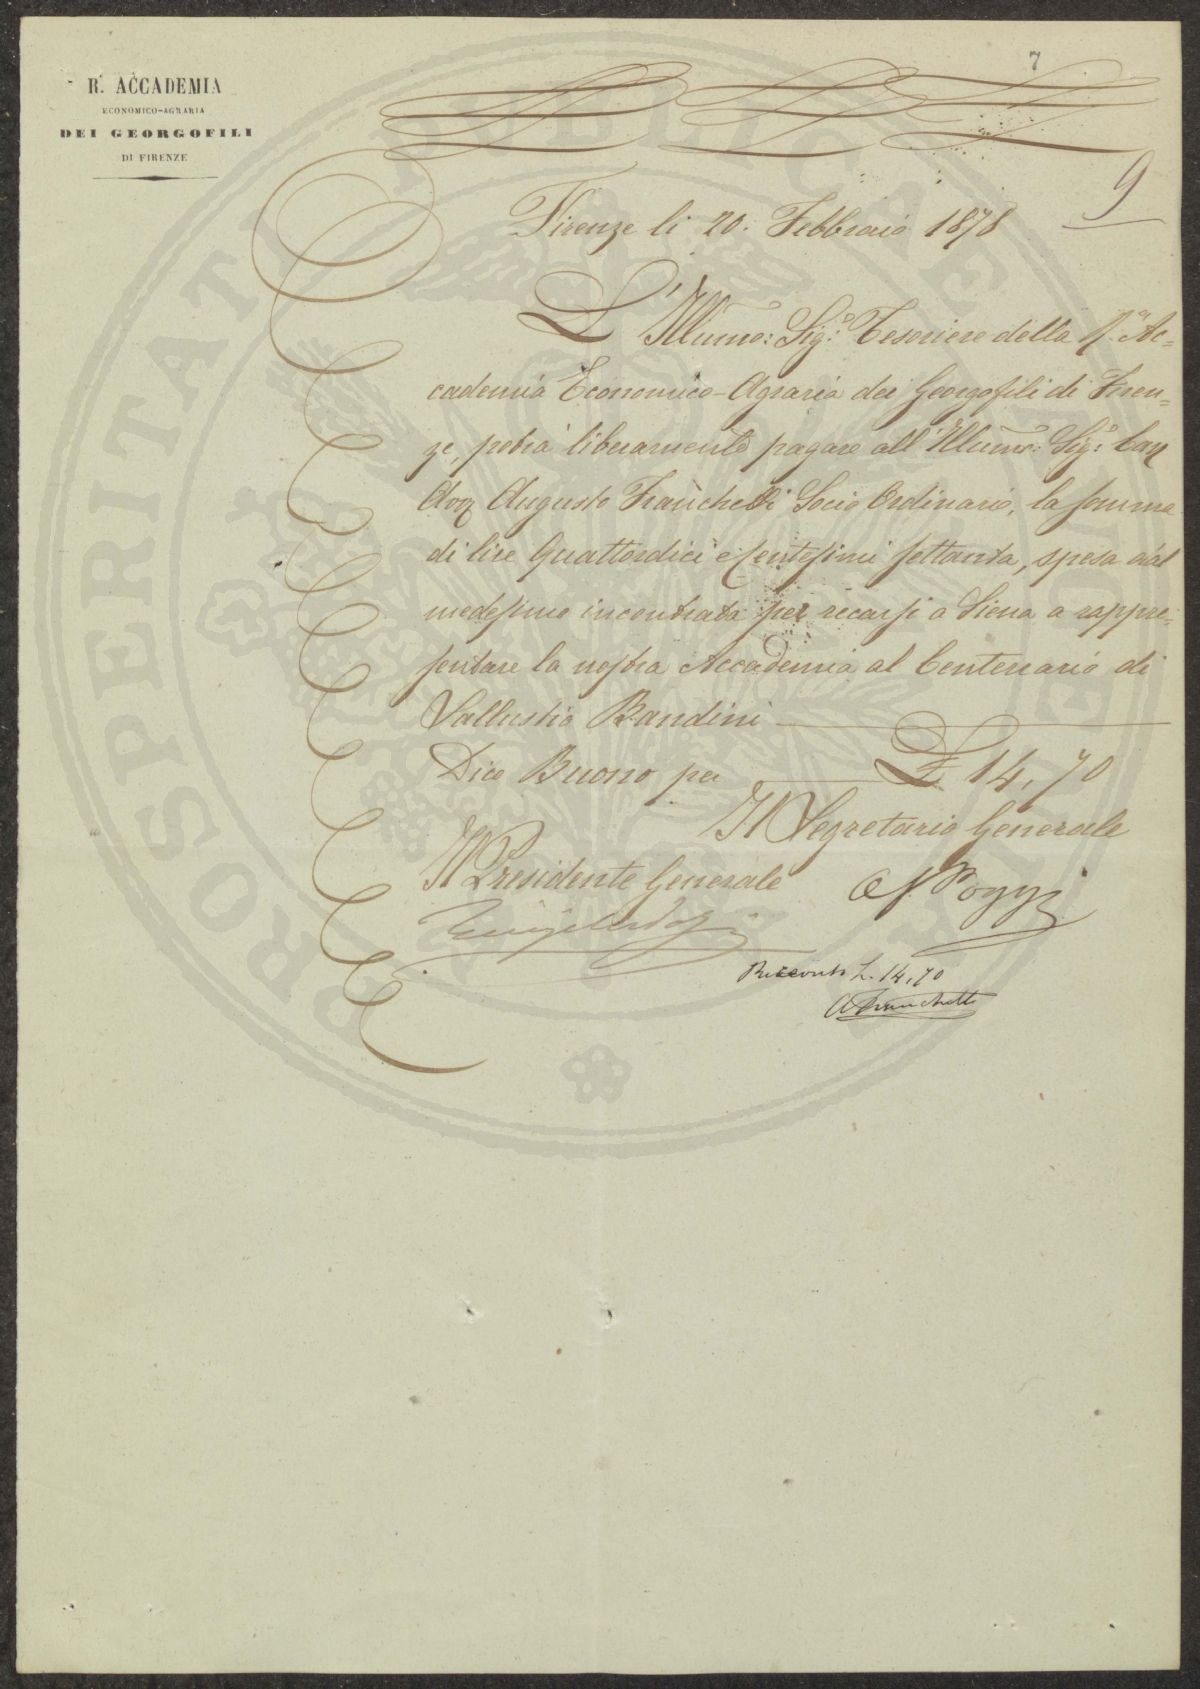 7
R. ACCADEMIA
ECONOMICO-AGRARIA
DEI GEORGOFILI
DI FIRENZE
9
Firenze li 20. Febbraio 1878
L'Illumo: Sigo: Tesoriere della R.a Ac=
cademia Economico-Agraria dei Georgofili di Firen=
ze, potrà liberamente pagare all'Illumo: Sigo: Cav
Avv Augusto Franchetti Socio Ordinario, la somma
di lire Quattordici e Centesimi settanta, spesa dal
medesimo incontrata per recarsi a Siena a rappre=
sentare la nostra Accademia al Centenario di
Sallustio Bandini
Dico Buono per £ 14,70
Il Segretario Generale
Il Presidente Generale
Poggi
Riscosso L. 14,70
A Franchetti
PROSPERITATI PUBLICAE AUGENDAE